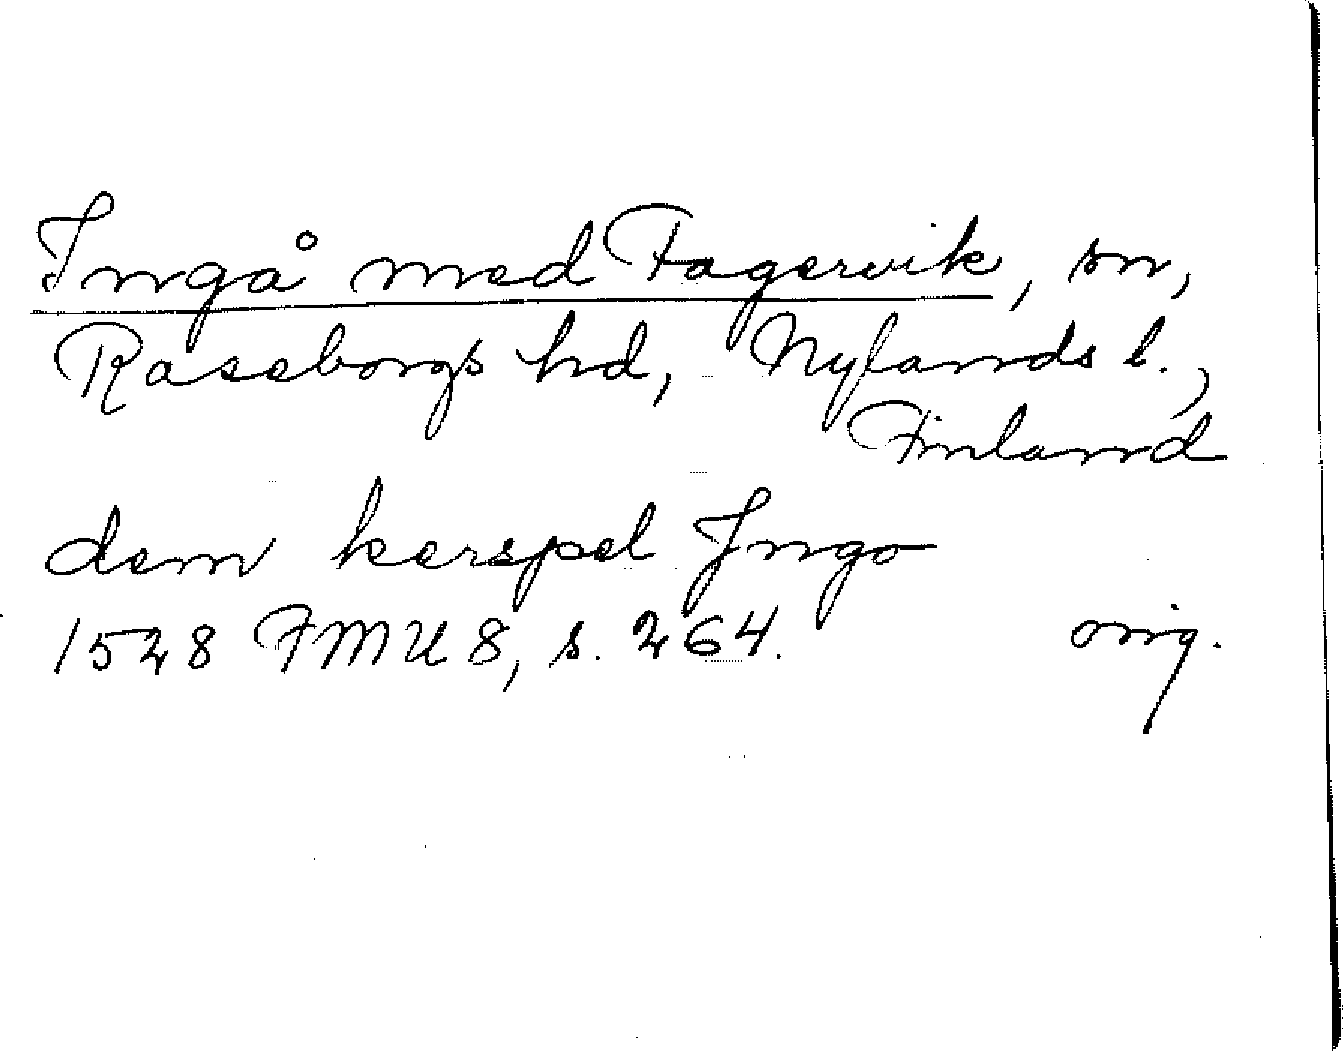 Ingå med Fagervik, sn,
Raseborgs hd, Nylands l.,
Finland
dem kerspel Jngo
1528 FMU 8, s. 264. orig.